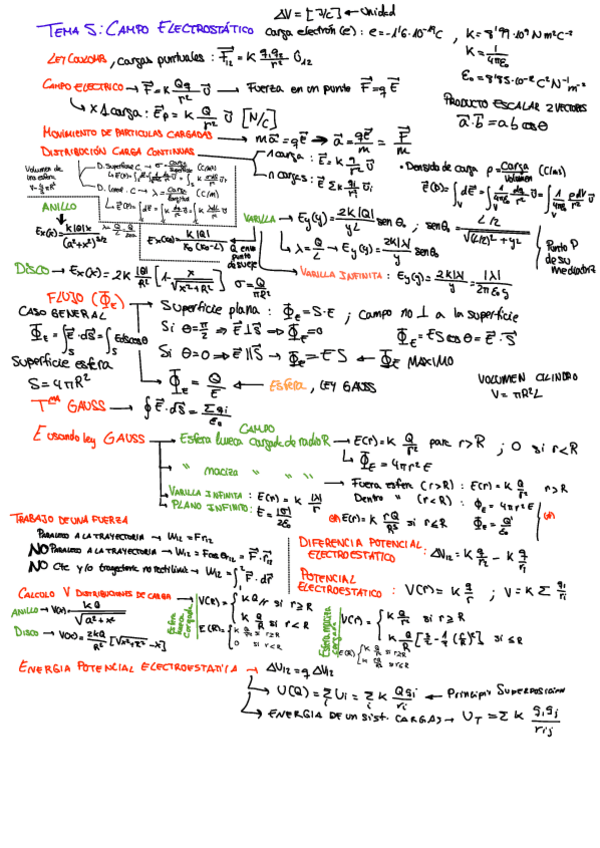 ΔV = [J/C] ← Unidad
TEMA 5: CAMPO ELECTROSTÁTICO carga electrón (e): e = -1'6·10⁻¹⁹C , K = 8'99·10⁹ N m² C⁻²
K = 1/4πε₀
LEY COULOMB, cargas puntuales: F⃗₁₂ = K q₁q₂/r² u⃗₁₂
ε₀ = 8'85·10⁻¹² C² N⁻¹ m⁻²
CAMPO ELECTRICO → F⃗ = K Qq/r² u⃗ → Fuerza en un punto F⃗ = q E⃗
PRODUCTO ESCALAR 2 VECTORES
↳ x 1 carga: E⃗p = K Q/r² u⃗ [N/C]
a⃗·b⃗ = a b cosθ
MOVIMIENTO DE PARTICULAS CARGADAS → m a⃗ = q E⃗ ⇒ a⃗ = qE⃗/m = F⃗/m
DISTRIBUCIÓN CARGA CONTINUAS → 1 carga: E⃗ = K q/r² u⃗
n cargas: E⃗ Σ K qi/ri² u⃗
• Densidad de carga ρ = Carga/Volumen (C/m³)
Volumen de una esfera
D. Superficie C → σ = Carga/Superficie (C/m²)
D. Lineal C → λ = Carga/Longitud (C/m)
ANILLO
Ex(x) = K|Q|x/(a²+x²)^3/2
Ex(x₀) = K|Q|/x₀(x₀-L) Q en punto de su eje
VARILLA → Ey(y) = 2K|Q|/yL senθ₀ ; senθ₀ = L/2/√((L/2)²+y²)
Punto P de su mediatriz
λ = Q/L → Ey(y) = 2K|λ|/y senθ₀
VARILLA INFINITA: Ey(y) = 2K|λ|/y = |λ|/2πε₀y
DISCO → Ex(x) = 2K |Q|/R² [1 - x/√(x²+R²)] σ = Q/πR²
FLUJO (Φ_E) → Superficie plana: Φ_E = S·E ; Campo no ⊥ a la superficie
CASO GENERAL
Φ_E = ∫_S E⃗·dS⃗ = ∫_S E ds cosθ
Si θ = π/2 ⇒ E⃗ ⊥ S⃗ ⇒ Φ_E = 0 Φ_E = ES cosθ = E⃗·S⃗
Si θ = 0 ⇒ E⃗ ∥ S⃗ → Φ_E = ES ← Φ_E MAXIMO
Superficie esfera
S = 4πR²
Φ_E = Q/E ← Esfera, LEY GAUSS
VOLUMEN CILINDRO
V = πR²L
Tma GAUSS → ∮ E⃗·dS⃗ = Σqi/ε₀
CAMPO
E usando ley GAUSS → Esfera hueca cargada de radio R → E(r) = K Q/r² para r>R ; 0 si r<R
↳ Φ_E = 4πr²E
" maciza " " " → Fuera esfera (r>R): E(r) = K Q/r² r>R
Dentro " (r<R): Φ_E = 4πr²E
E(r) = K rQ/R³ si r≤R Φ_E = Q'/ε₀
VARILLA INFINITA: E(r) = K |λ|/r
PLANO INFINITO: E = |σ|/2ε₀
TRABAJO DE UNA FUERZA
PARALELO A LA TRAYECTORIA → W₁₂ = F r₁₂
NO PARALELO A LA TRAYECTORIA → W₁₂ = F cosθ r₁₂ = F⃗·r⃗₁₂
NO Cte y/o trayectoria no rectilinea → W₁₂ = ∫₁² F⃗·dr⃗
DIFERENCIA POTENCIAL ELECTROESTATICO: ΔV₁₂ = K q/r₂ - K q/r₁
POTENCIAL ELECTROESTATICO: V(r) = K q/r ; V = K Σ qi/ri
CALCULO V DISTRIBUCIONES DE CARGA
ANILLO → V(x) = KQ/√(a²+x²)
DISCO → V(x) = 2KQ/R² [√(x²+R²) - x]
Esfera hueca Cargada
V(R) = { K Q/r si r≥R
K Q/R si r<R
E(R) = { K Q/r² si r≥R
0 si r<R
Esfera maciza cargada
V(r) = { K Q/r si r≥R
K Q/R [3/2 - 1/2 (r/R)²] si r≤R
ENERGIA POTENCIAL ELECTROESTATICA → ΔU₁₂ = q ΔV₁₂
↳ U(Q) = Σ Ui = Σ K Qqi/ri ← Principio Superposicion
↳ ENERGIA DE UN SIST. CARGAS → U_T = Σ K qiqj/rij